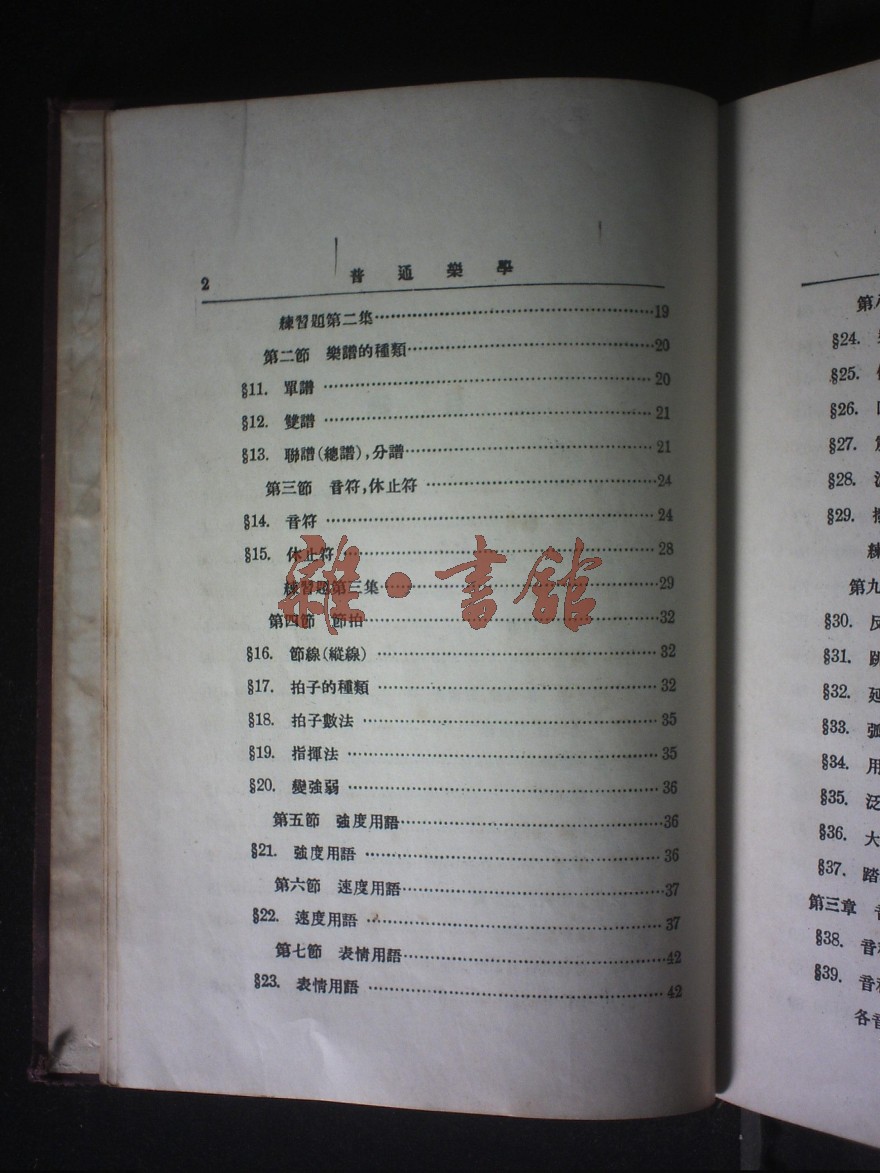 2 普通樂學
練習題第二集……19
第二節 樂譜的種類……20
§11. 單譜……20
§12. 雙譜……21
§13. 聯譜(總譜),分譜……21
第三節 音符,休止符……24
§14. 音符……24
§15. 休止符……28
練習題第三集……29
第四節 節拍……32
§16. 節線(縱線)……32
§17. 拍子的種類……32
§18. 拍子數法……35
§19. 指揮法……35
§20. 變強弱……36
第五節 強度用語……36
§21. 強度用語……36
第六節 速度用語……37
§22. 速度用語……37
第七節 表情用語……42
§23. 表情用語……42
雜·書館
§24.
§25.
§26.
§27.
§28.
§29.
練
第九
§30. 反
§31. 跳
§32. 延
§33. 弧
§34. 用
§35. 泛
§36. 大
§37. 踏
第三章
§38. 音
§39. 音
各音